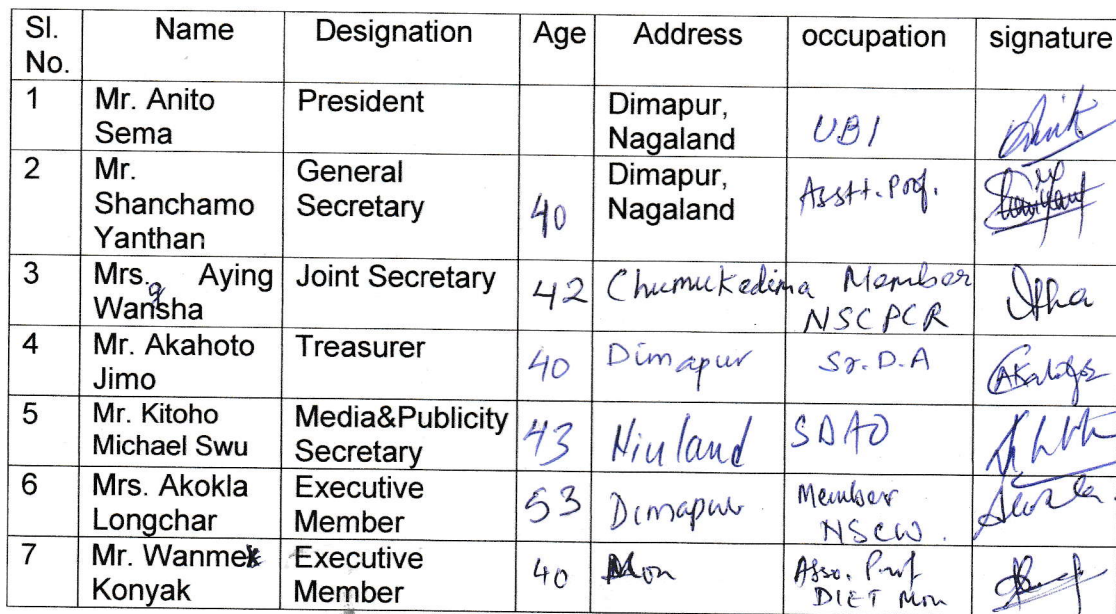 Sl. No. Name Designation Age Address occupation signature
1 Mr. Anito Sema President Dimapur, Nagaland UBI
2 Mr. Shanchamo Yanthan General Secretary 40 Dimapur, Nagaland Asstt. Prof.
3 Mrs. Aying Wangsha Joint Secretary 42 Chumukedima Member NSCPCR
4 Mr. Akahoto Jimo Treasurer 40 Dimapur Sr. D.A
5 Mr. Kitoho Michael Swu Media&Publicity Secretary 43 Niuland SDAO
6 Mrs. Akokla Longchar Executive Member 53 Dimapur Member NSCW.
7 Mr. Wanmek Konyak Executive Member 40 Mon Asso. Prof DIET Mon